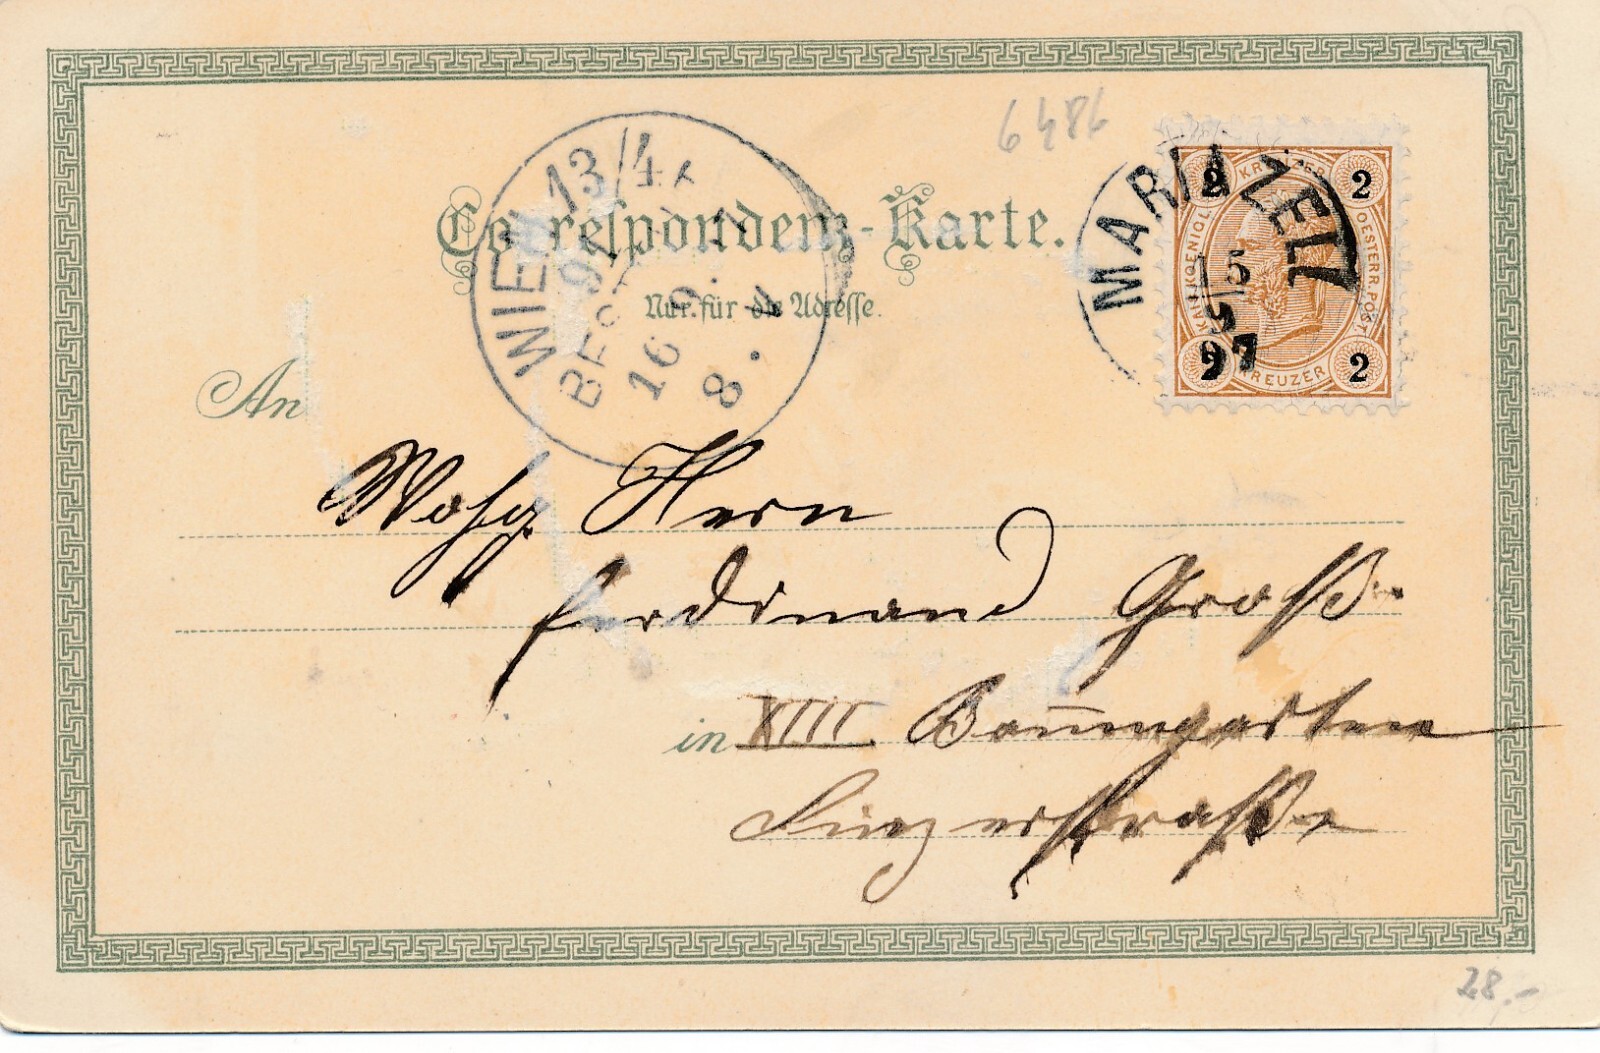 6486
WIEN 13/4
BEST
16.9.
8.V
97
MARIAZELL
15
9
97
KAIS. KOENIGL. OESTERR. POST.
2 KREUZER 2
2 KREUZER 2
Correspondenz-Karte.
Nur für die Adresse.
An
Wohlg. Herrn
Ferdinand Groß
in XIII. Baumgarten
Linzerstraße
28.-